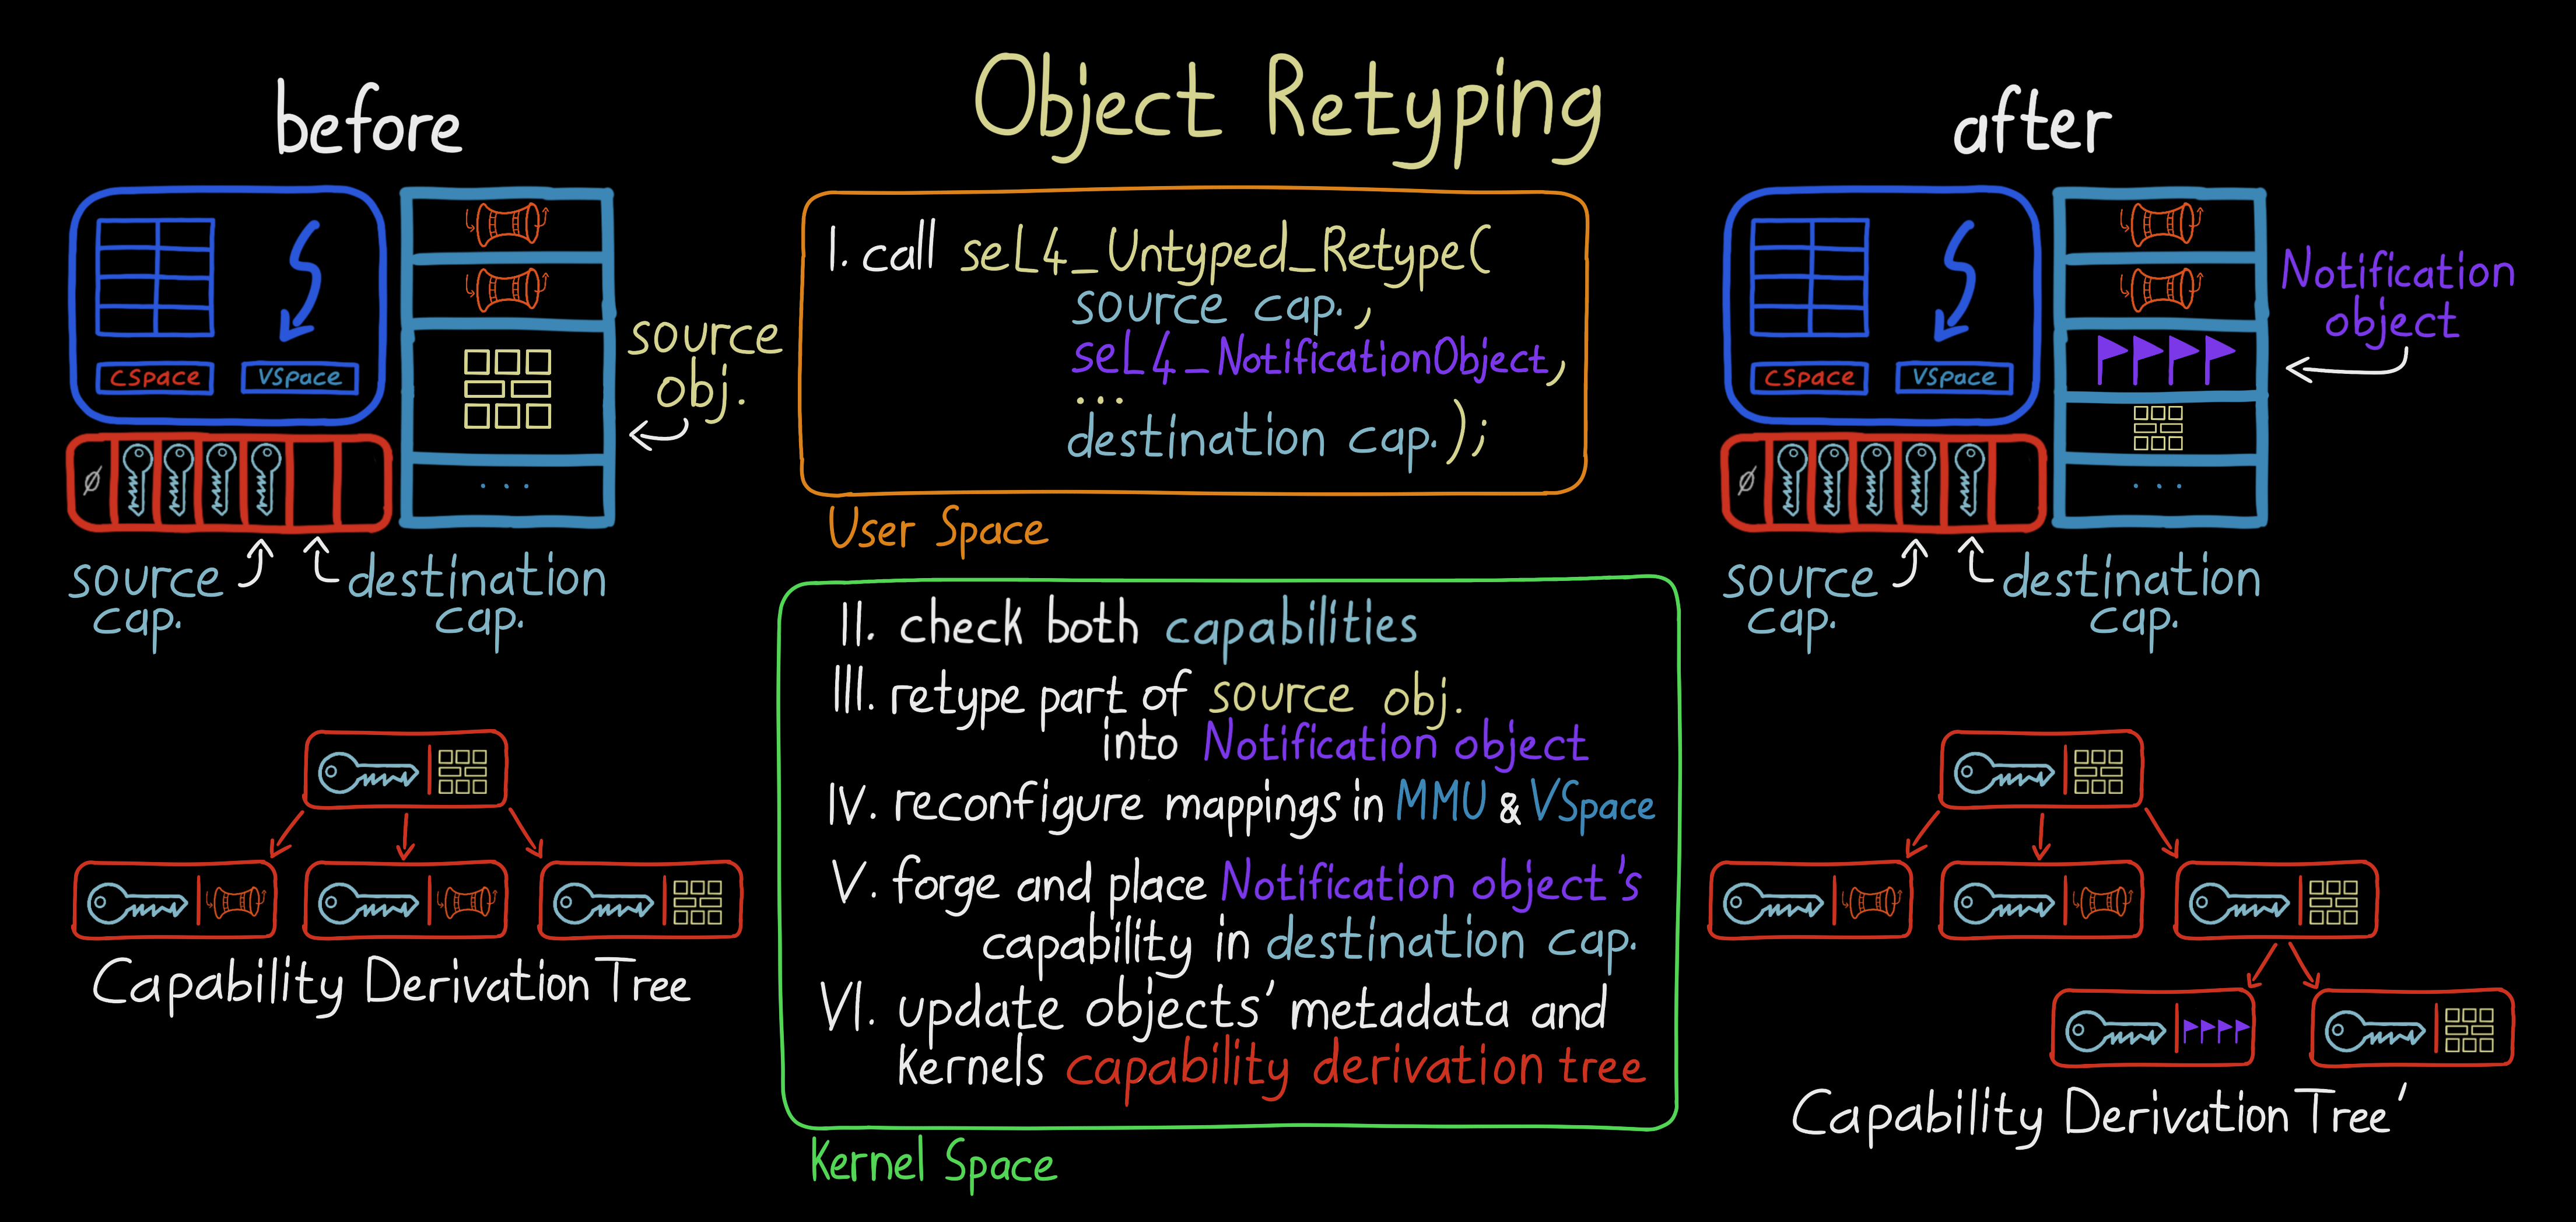 Object Retyping
before
CSpace
VSpace
Ø
. . .
source
obj.
source
cap.
destination
cap.
Capability Derivation Tree
I. call seL4_Untyped_Retype(
source cap.,
seL4_NotificationObject,
...
destination cap.);
User Space
II. check both capabilities
III. retype part of source obj.
into Notification object
IV. reconfigure mappings in MMU & VSpace
V. forge and place Notification object's
capability in destination cap.
VI. update objects' metadata and
kernels capability derivation tree
Kernel Space
after
CSpace
VSpace
Ø
. . .
Notification
object
source
cap.
destination
cap.
Capability Derivation Tree'